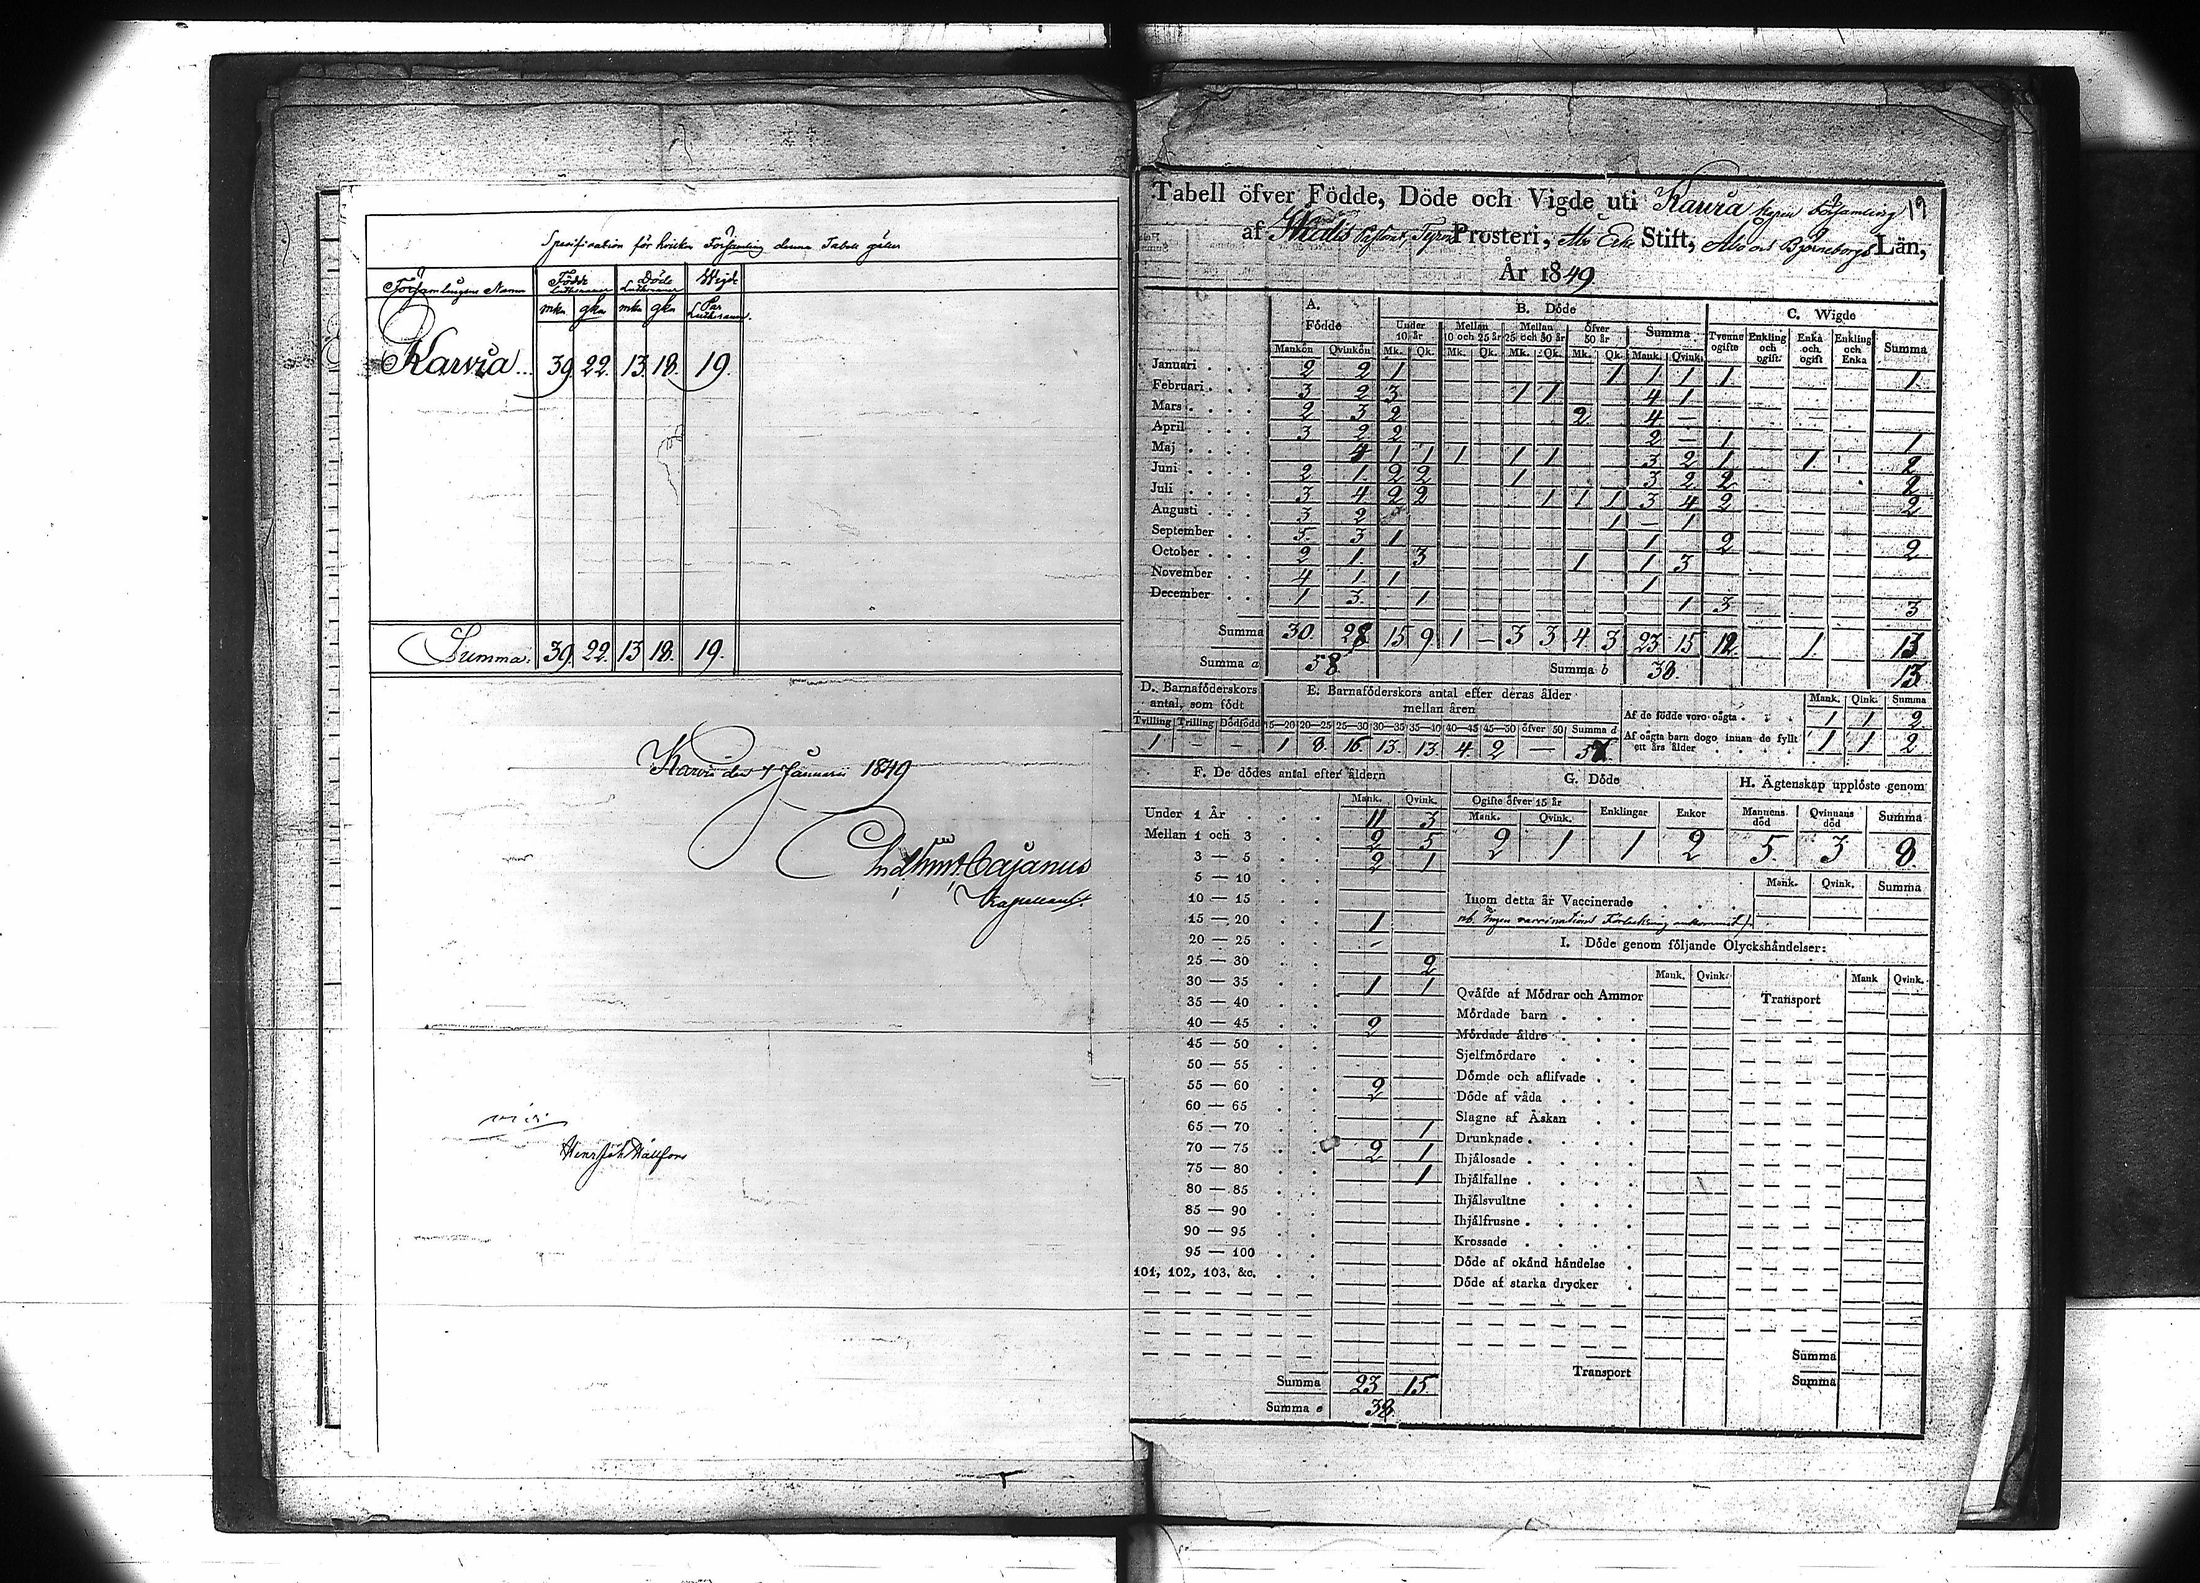 Spesifikation för hvilken Församling denna Tabell gäller
Församlingens Namn Födde Lutheraner Döde Lutheraner Wigde
mkn qkn mkn qkn Par Lutheraner.
Karvia... 39. 22. 13. 18. 19.
Summa. 39. 22. 13. 18. 19.
Karvia den 7 Januarii 1849
Cajanus
Kapellan
19
Tabell öfver Födde, Döde och Vigde uti Karvia Församling
af Prosteri, Åbo Erke Stift, Åbo och Björneborgs Län,
År 1849
A. Födde B. Döde C. Wigde
Under 10 år Mellan 10 och 25 år Mellan 25 och 50 år Öfver 50 år Summa Tvenne ogifte Enkling och ogift Enka och ogift Enkling och Enka Summa
Mankön Qvinkön Mk. Qk. Mk. Qk. Mk. Qk. Mk. Qk. Mank. Qvink.
Januari 2 2 1 1 1 1 1 1
Februari 3 2 3 1 1 4 1
Mars 2 3 2 2 4 —
April 3 2 2 2 — 1 1
Maj 4 1 1 1 1 1 3 2 1 1 2
Juni 2 1 2 2 1 3 2 2 2
Juli 3 4 2 2 1 1 1 3 4 2 2
Augusti 3 2 1 — 1
September 5 3 1 1 2 2
October 2 1 3 1 1 3
November 4 1 1 1
December 1 3 1 1 3 3
Summa 30. 28 15 9 1 — 3 3 4 3 23 15 12 1. 13
Summa a 58 Summa b 38. 13
D. Barnaföderskors antal, som födt
Tvilling Trilling Dödfödd
1 — —
E. Barnaföderskors antal efter deras ålder mellan åren
15—20 20—25 25—30 30—35 35—40 40—45 45—50 öfver 50 Summa d
1 8. 16 13. 13. 4. 2 — 57.
Mank. Qink. Summa
Af de födde voro oägta 1 1 2
Af oägta barn dogo innan de fyllt ett års ålder 1 1 2
F. De dödes antal efter åldern
Mank. Qvink.
Under 1 År 11 3
Mellan 1 och 3 2 5
3 — 5 2 1
5 — 10
10 — 15
15 — 20 1
20 — 25 -
25 — 30 2
30 — 35 1 1
35 — 40
40 — 45 2
45 — 50
50 — 55
55 — 60 2
60 — 65
65 — 70 1
70 — 75 2 1
75 — 80 1
80 — 85
85 — 90
90 — 95
95 — 100
101, 102, 103, &c.
Summa 23 15
Summa e 38.
G. Döde
Ogifte öfver 15 år Enklingar Enkor
Mank. Qvink.
2 1 1 2
H. Ägtenskap upplöste genom
Mannens död Qvinnans död Summa
5. 3 8.
Mank. Qvink. Summa
Inom detta år Vaccinerade
nb. Ingen vaccinations Förteckning
I. Döde genom följande Olyckshändelser:
Mank. Qvink. Mank Qvink.
Qväfde af Mödrar och Ammor Transport
Mördade barn
Mördade äldre
Sjelfmördare
Dömde och aflifvade
Döde af våda
Slagne af Åskan
Drunknade
Ihjälosade
Ihjälfallne
Ihjälsvultne
Ihjälfrusne
Krossade
Döde af okänd händelse
Döde af starka drycker
Summa
Transport Summa